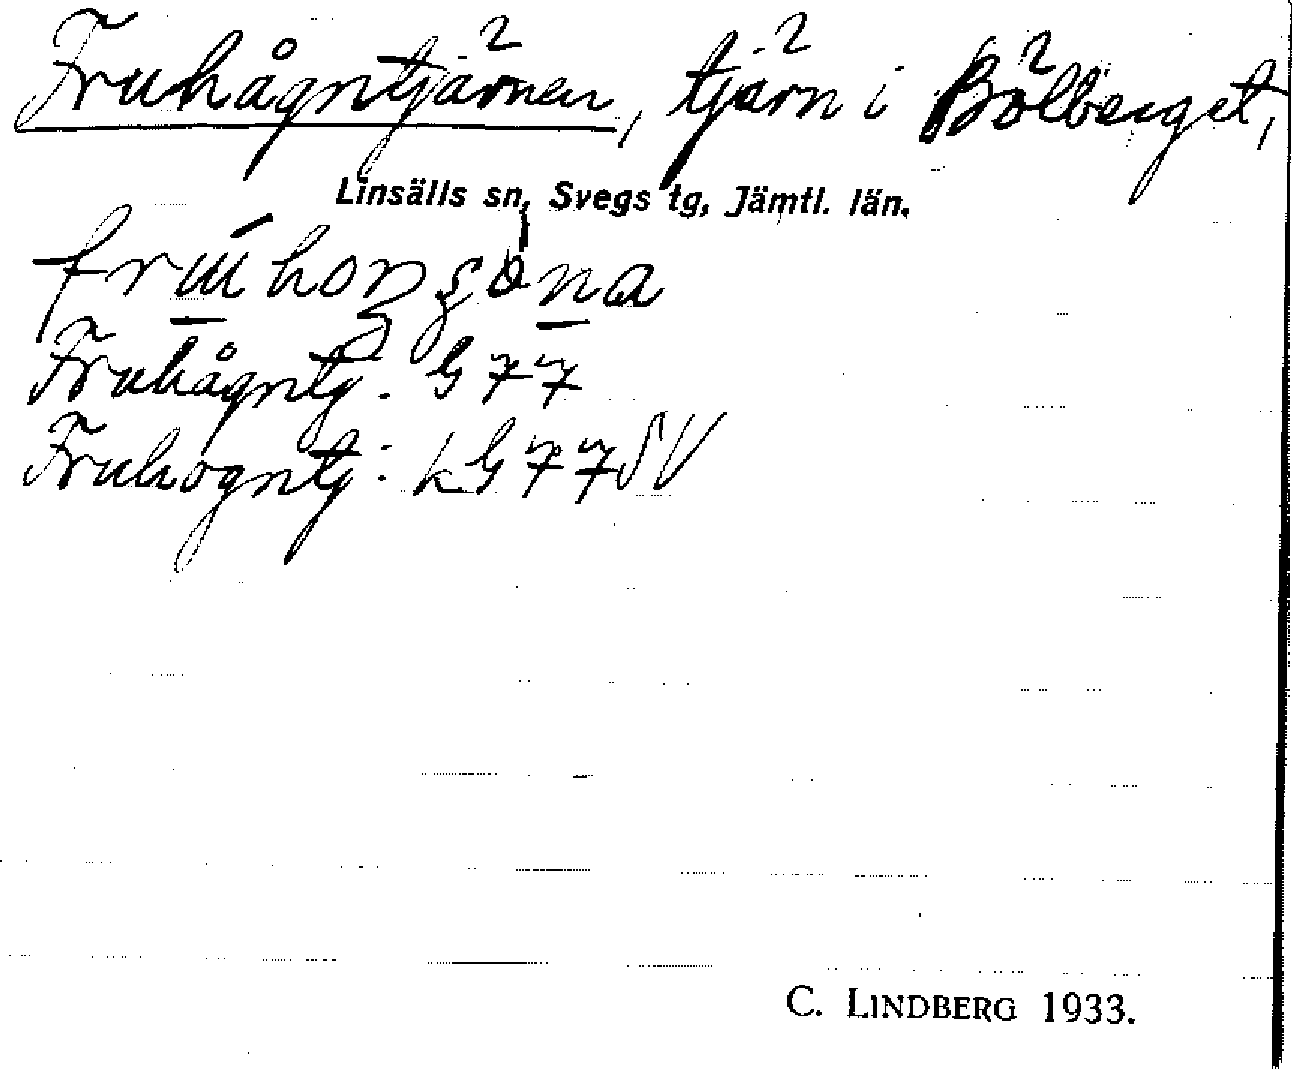 Fruhågntjärnen, tjärn i Bölberget,
Linsälls sn, Svegs tg, Jämtl. län.
Fruhågntj. G 77
Fruhogntj: kG 77 SV
C. LINDBERG 1933.